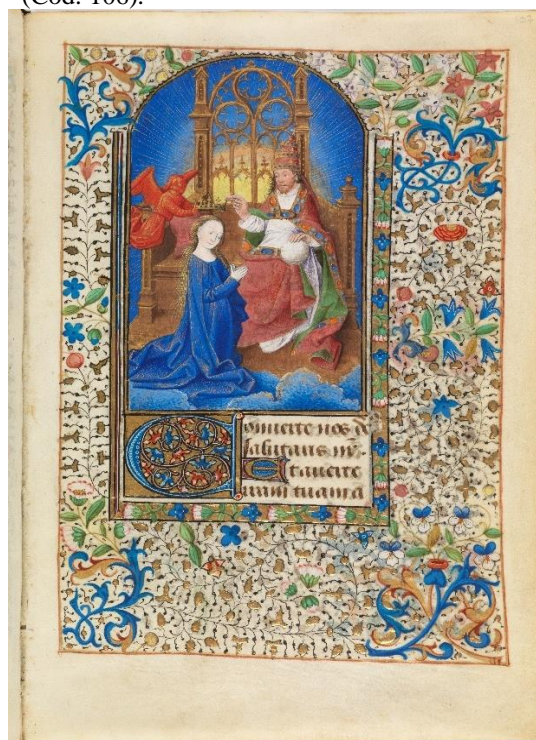 (Cod. 106).
Conuerte nos d
salutaris nr̄.
Et auerte
iram tuam a